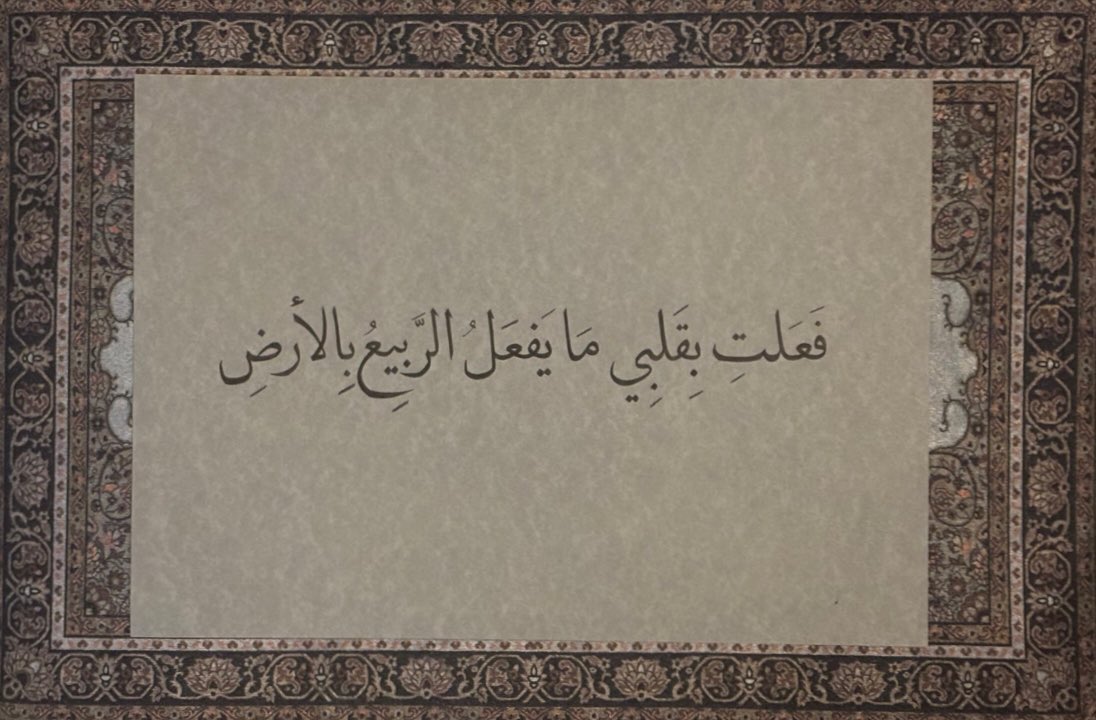 فَعَلتِ بِقَلبِي مَا يَفعَلُ الرَّبِيعُ بِالأرضِ